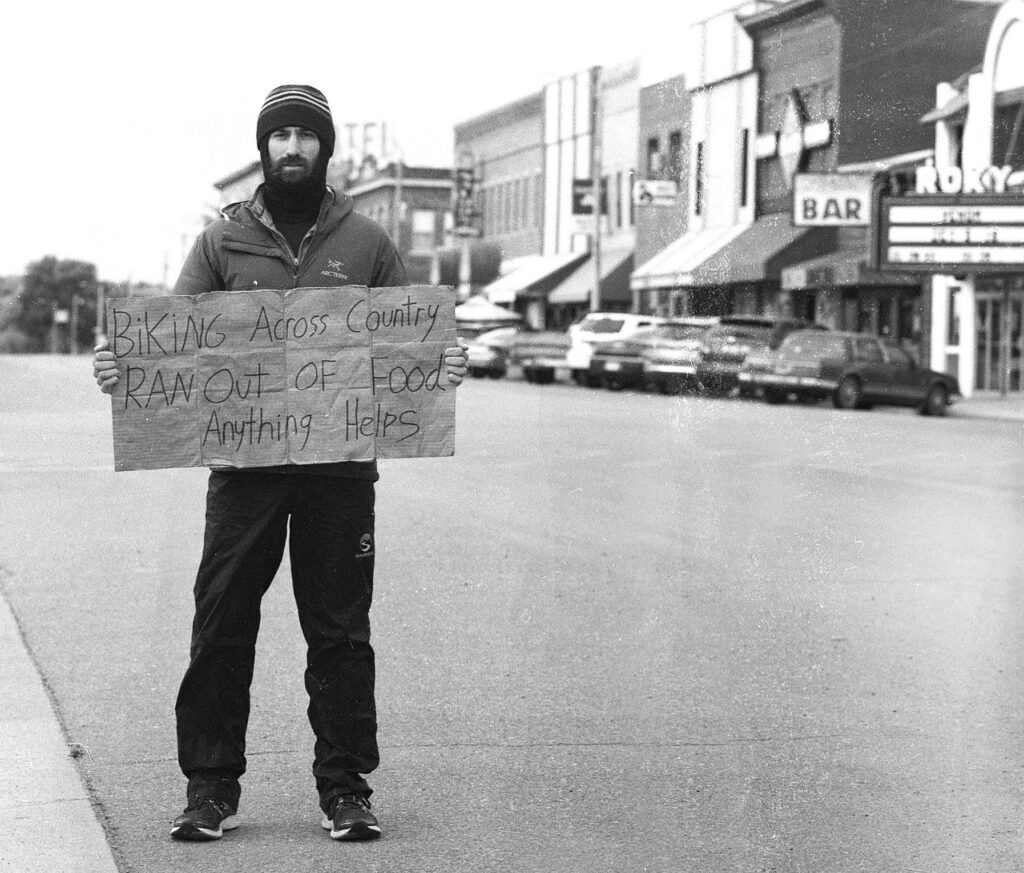 BiKiNG Across Country
RAN Out OF Food
Anything Helps
ARC'TERYX
BAR
ROXY